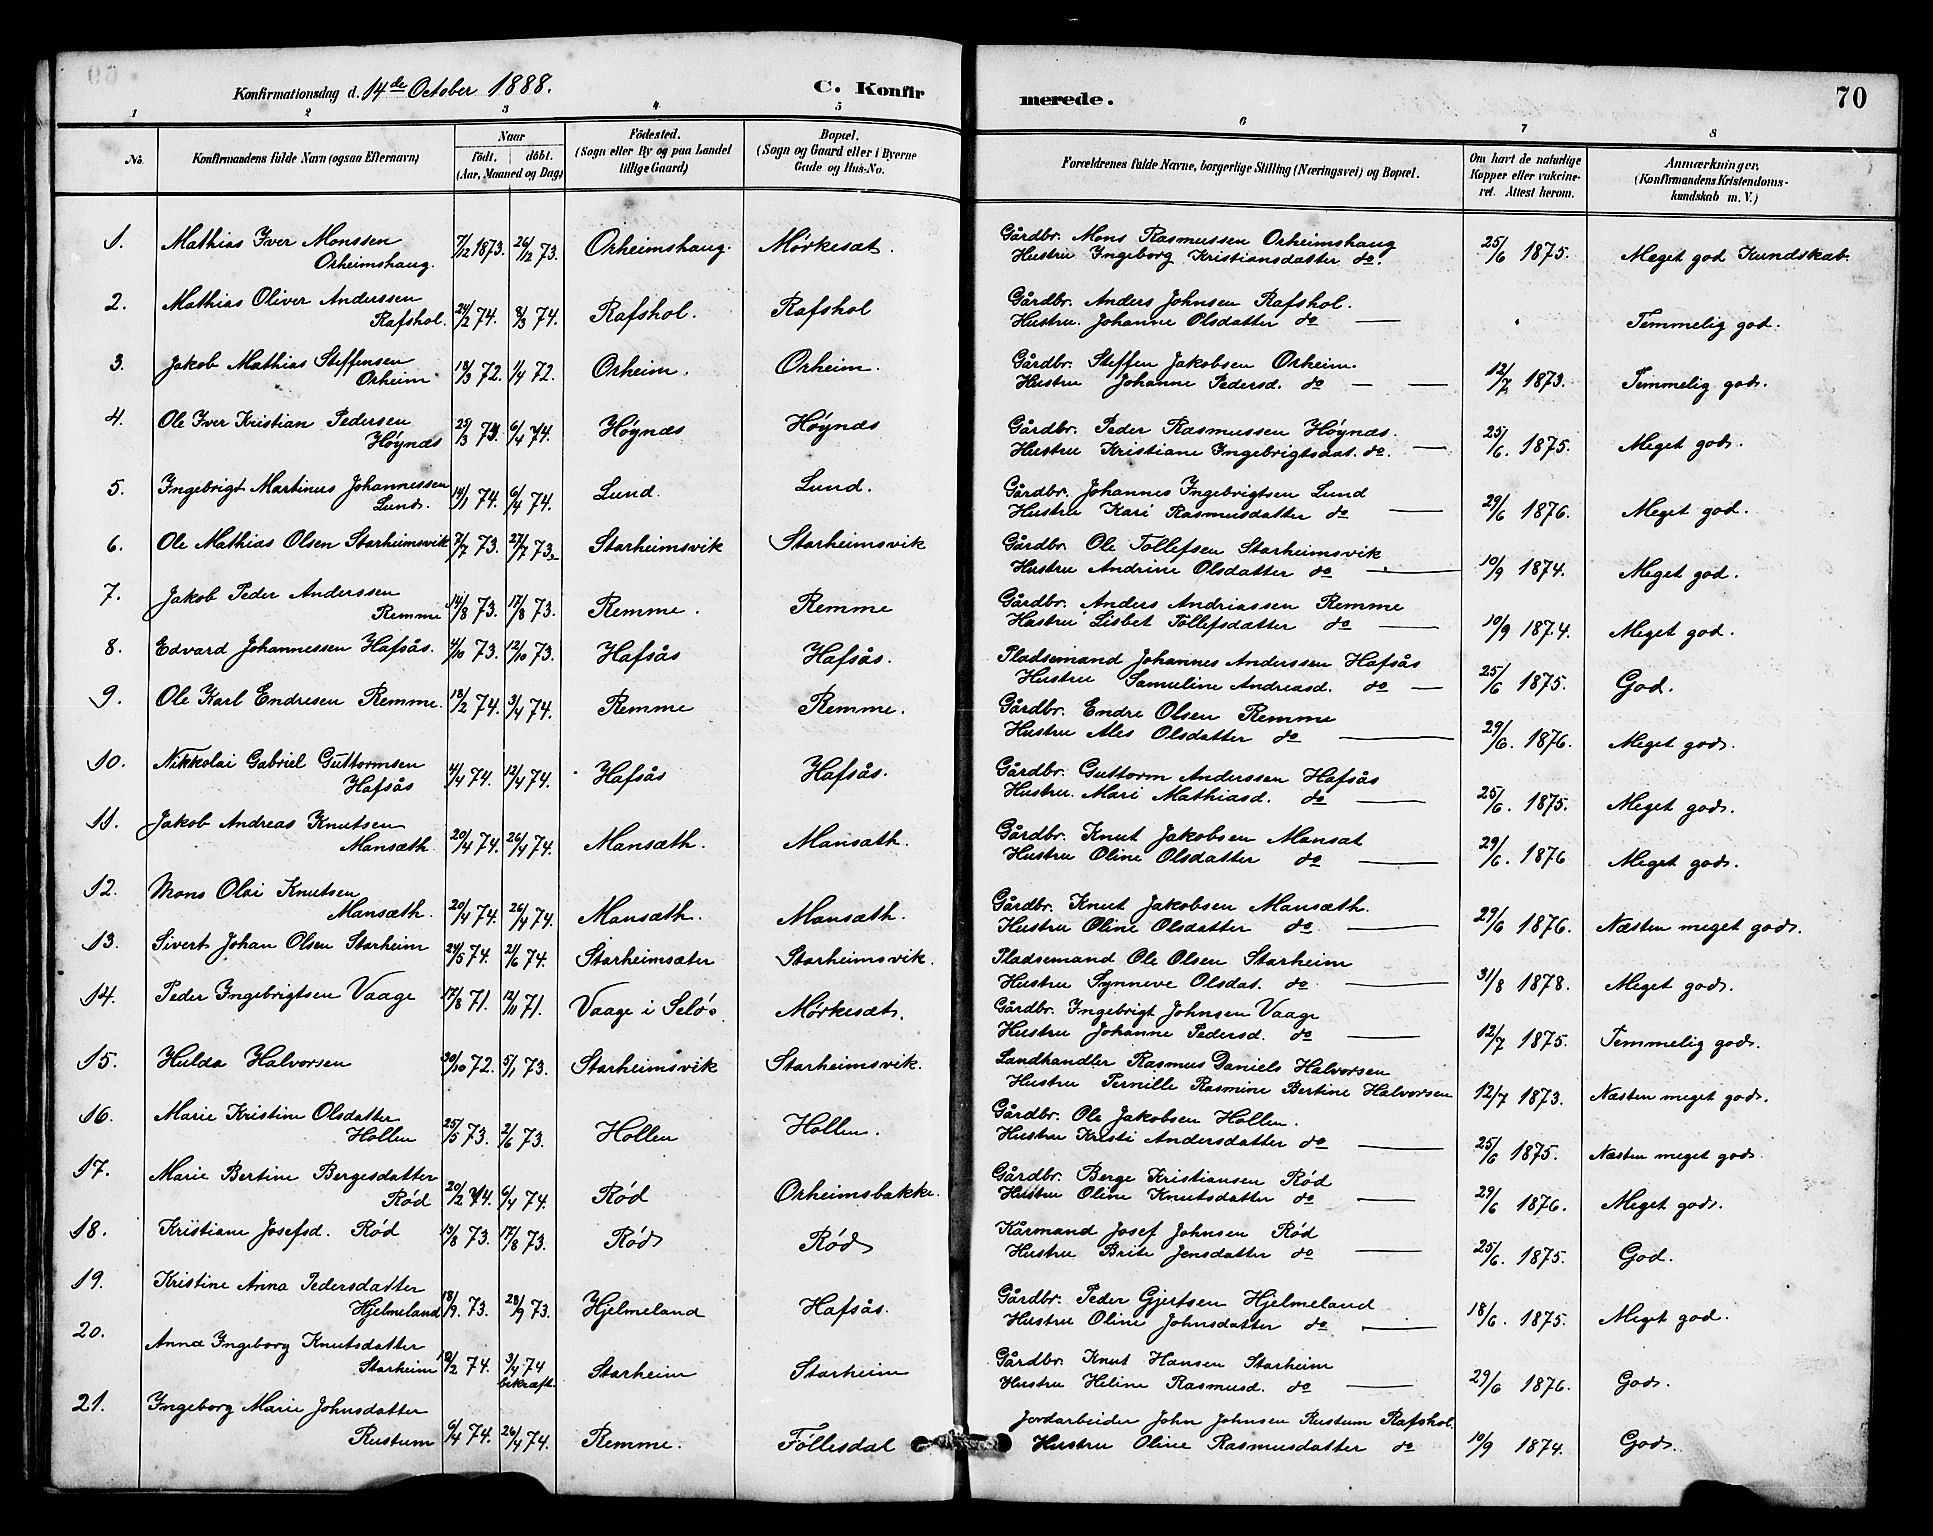 Konfirmationsdag d. 14de October 1888. C. Konfir merede. 70
1 2 3 4 5 6 7 8
No. Konfirmandens fulde Navn (ogsaa Efternavn) Naar födt. döbt. (Aar, Maaned og Dag) Födested. (Sogn eller By og paa Landet tillige Gaard) Bopæl. (Sogn og Gaard eller i Byerne Gade og Hus-No. Forældrenes fulde Navne, borgerlige Stilling (Næringsvei) og Bopæl. Om havt de naturlige Kopper eller vakcineret. Attest herom. Anmærkninger, (Konfirmandens Kristendomskundskab m. V.)
1. Mathias Iver Monssen Orheimshaug. 7/12 1873. 26/12 73. Orheimshaug. Mörkesæt. Gårdbr. Mons Rasmussen Orheimshaug
Hustru Ingeborg Kristiansdatter do. 25/6 1875. Meget god Kundskab.
2. Mathias Oliver Anderssen Rafshol. 24/2 74. 8/3 74. Rafshol. Rafshol Gårdbr. Anders Johnsen Rafshol.
Hustru. Johanne Olsdatter do — Temmelig god.
3. Jakob Mathias Steffensen Orheim 18/3 72. 1/4 72. Orheim. Orheim. Gårdbr. Steffen Jakobsen Orheim.
Hustru Johanne Pedersd. do — — 12/7 1873. Temmelig god.
4. Ole Iver Kristian Pedersen Höynæs 29/3 73. 6/4 74. Höynæs Höynæs Gårdbr. Peder Rasmussen Höynæs.
Hustru Kristiane Ingebrigtsdat. do. — 25/6. 1875. Meget god.
5. Ingebrigt Martinus Johannessen Lund. 14/1 74. 6/4 74. Lund. Lund. Gårdbr. Johannes Ingebrigtsen Lund
Hustru Kari Rasmusdatter do — 29/6 1876. Meget god.
6. Ole Mathias Olsen Starheimsvik 7/7 73. 27/7 73. Starheimsvik Starheimsvik Gårdbr. Ole Tollefsen Starheimsvik
Hustru Andrine Olsdatter do — 10/9 1874. Meget god.
7. Jakob Peder Anderssen Remme 14/8 73. 17/8 73. Remme. Remme Gårdbr. Anders Andriassen Remme
Hustru Lisbet Tollefsdatter do — 10/9 1874. Meget god.
8. Edvard Johannessen Hafsås. 4/10 73. 12/10 73. Hafsås Hafsås. Pladsemand Johannes Anderssen Hafsås
Hustru Samueline Andreasd. do — 25/6 1875. God.
9. Ole Karl Endresen Remme. 18/2 74. 3/4 74. Remme Remme. Gårdbr. Endre Olsen Remme
Hustru Ales Olsdatter do — 29/6. 1876. Meget god.
10. Nikkolai Gabriel Guttormsen Hafsås 4/4 74. 12/4 74. Hafsås Hafsås. Gårdbr. Guttorm Anderssen Hafsås
Hustru. Mari Mathiasd. do — 25/6. 1875. Meget god.
11. Jakob Andreas Knutsen Mansæth. 20/4 74. 26/4 74. Mansæth. Mansæth. Gårdbr. Knut Jakobsen Mansæt
Hustru Oline Olsdatter do — 29/6. 1876 Meget god.
12. Mons Olai Knutsen Mansæth. 20/4 74. 26/4 74. Mansæth. Mansæth. Gårdbr. Knut Jakobsen Mansæth.
Hustru Oline Olsdatter do — 29/6 1876. Næsten meget god.
13. Sivert Johan Olsen Starheim 24/5 74. 21/6 74. Starheimsæter Starheimsvik. Pladsemand Ole Olsen Starheim
Hustru Synneve Olsdat. do — 31/8 1878. Meget god.
14. Peder Ingebrigtsen Vaage 17/8 71. 12/11 71. Vaage i Selö. Mörkesæt. Gårdbr. Ingebrigt Johnsen Vaage
Hustru Johanne Pedersd. do — 12/7 1875. Temmelig god.
15. Hulda Halvorsen 30/10 72. 5/1 73. Starheimsvik Starheimsvik. Landhandler Rasmus Daniels Halvorsen
Hustru Pernille Rasmine Bertine Halvorsen 12/7 1873. Næsten meget god.
16. Marie Kristine Olsdatter Hollen 25/5 73. 2/6 73. Hollen Hollen. Gårdbr. Ole Jakobsen Hollen.
Hustru Kristi Andersdatter do — 25/6 1875. Næsten meget god.
17. Marie Bertine Bergesdatter Röd 20/2 74. 6/4 74. Röd Orheimsbakke. Gårdbr. Berge Kristiansen Röd
Hustru Oline Knutsdatter do — 29/6 1876. Meget god.
18. Kristiane Josefsd. Röd 13/8 73. 17/8 73. Röd Röd Kårmand Josef Johnsen Röd
Hustru Brite Jensdatter do — 25/6. 1875. God.
19. Kristine Anna Pedersdatter Hjelmeland 18/9. 73. 28/9 73. Hjelmeland Hafsås. Gårdbr. Peder Gjertsen Hjelmeland
Hustru Oline Johnsdatter do — 18/6. 1875. Meget god.
20. Anna Ingeborg Knutsdatter Starheim 74. 3/4 74 bekræft. Starheim Starheim Gårdbr. Knut Hansen Starheim
Hustru Heline Rasmusd. do — 29/6 1876. God.
21. Ingeborg Marie Johnsdatter Rustum 6/4 74. 26/4 74. Remme. Föllesdal Jordarbeider John Johnsen Rustum Rafshol.
Hustru Oline Rasmusdatter do 10/9 1874. God.